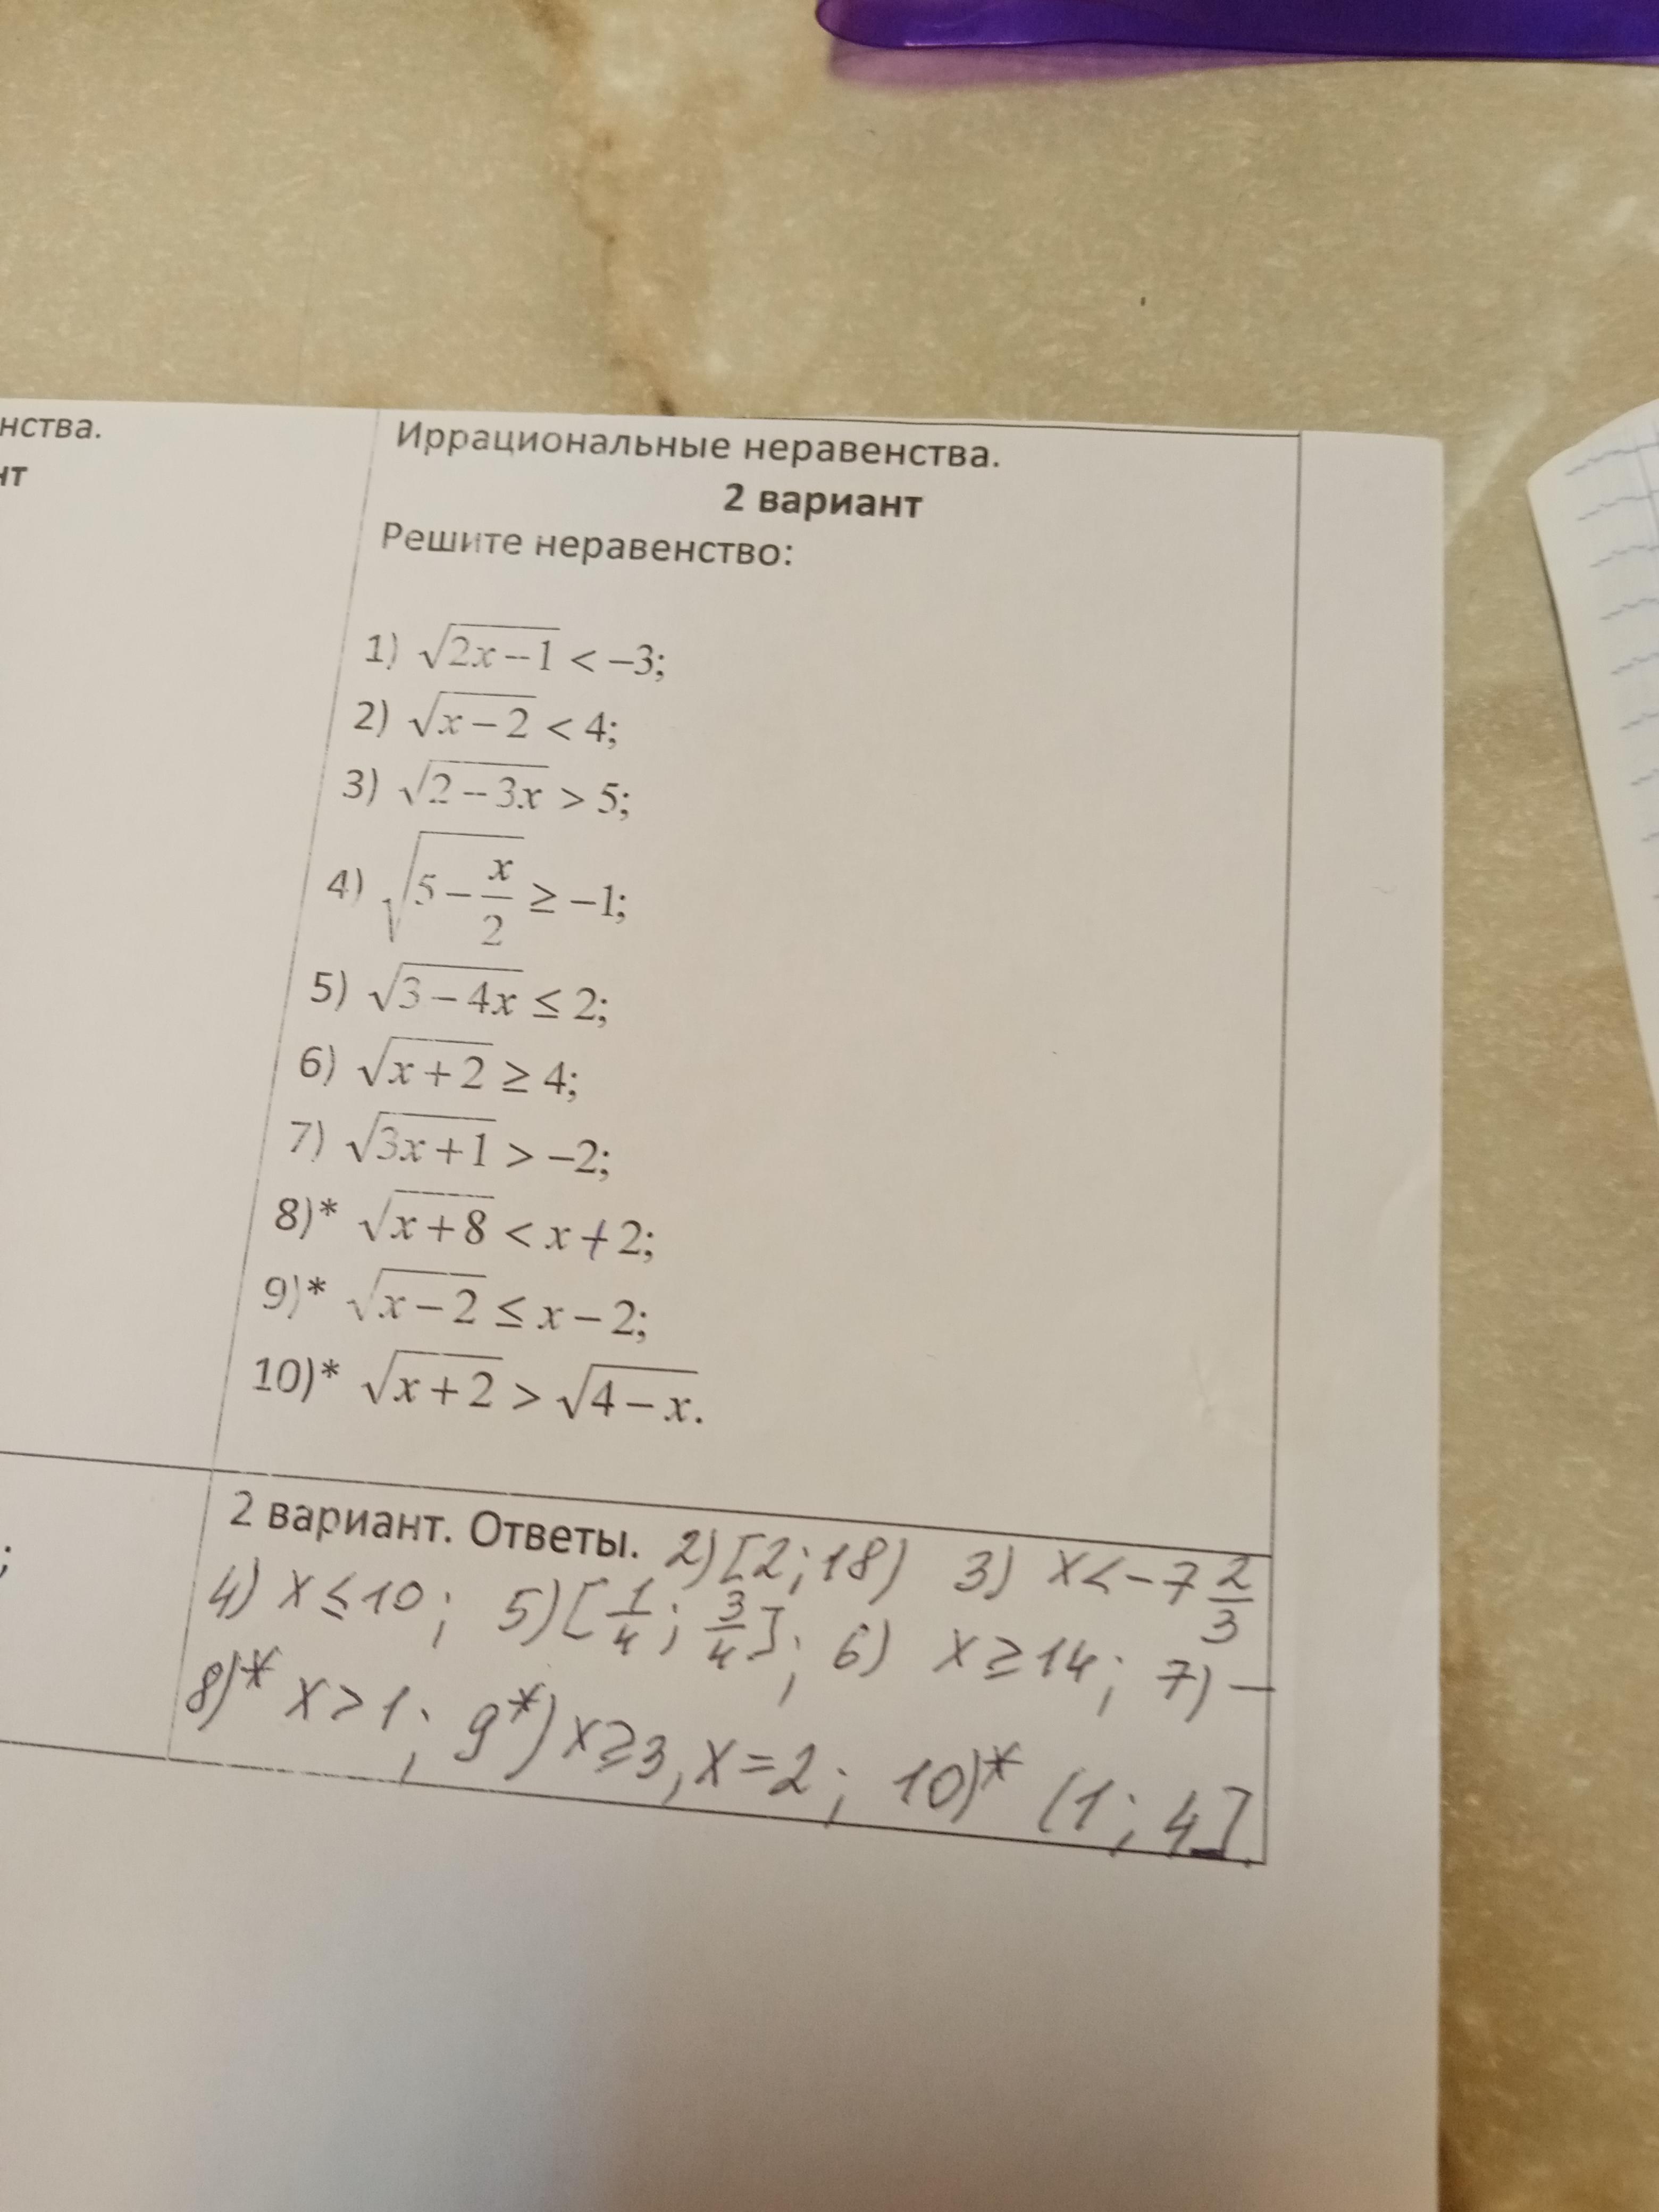 нства.
нт
Иррациональные неравенства.
2 вариант
Решите неравенство:
1) √(2x – 1) < –3;
2) √(x – 2) < 4;
3) √(2 – 3x) > 5;
4) √(5 – x/2) ≥ –1;
5) √(3 – 4x) ≤ 2;
6) √(x + 2) ≥ 4;
7) √(3x + 1) > –2;
8)* √(x + 8) < x + 2;
9)* √(x – 2) ≤ x – 2;
10)* √(x + 2) > √(4 – x).
;
2 вариант. Ответы. 2) [2; 18) 3) x < –7 2/3
4) x ≤ 10; 5) [1/4; 3/4]; 6) x ≥ 14; 7) –
8)* x > 1; 9*) x ≥ 3, x = 2; 10)* (1; 4].